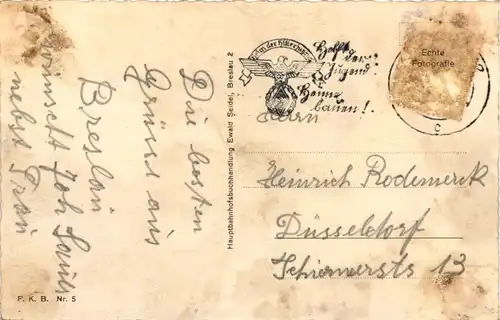 Die besten
Grüsse aus
Breslau
wünscht Joh
nebst Frau
Hauptbahnhofsbuchhandlung Ewald Seidel, Breslau 2
der
Helft
der
Jugend
Heime
bauen!
Echte
Fotografie
c
Herrn
Heinrich Rodemerck
Düsseldorf
13
P. K. B. Nr. 5